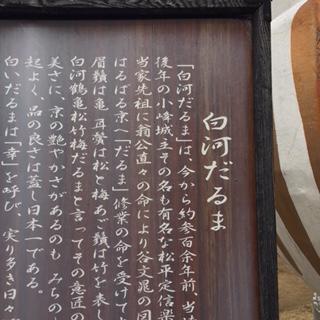 白河だるま
「白河だるま」は、今から約参百余年前、当時
後年の小峰城主その名も有名な松平定信楽
当家先祖に翁公直々の命により谷文晁の図
はるばる京へ「だるま」修業の命を受けて
眉鬚は亀耳鬢は松と梅あご鬚は竹を表し
白河鶴亀松竹梅だるまと言ってその意匠の
美さに、京の艶やかさがあるのも みちの
起よく、品の良さは盖し日本一である。
白いだるまは「幸」を呼び、実り多き日々